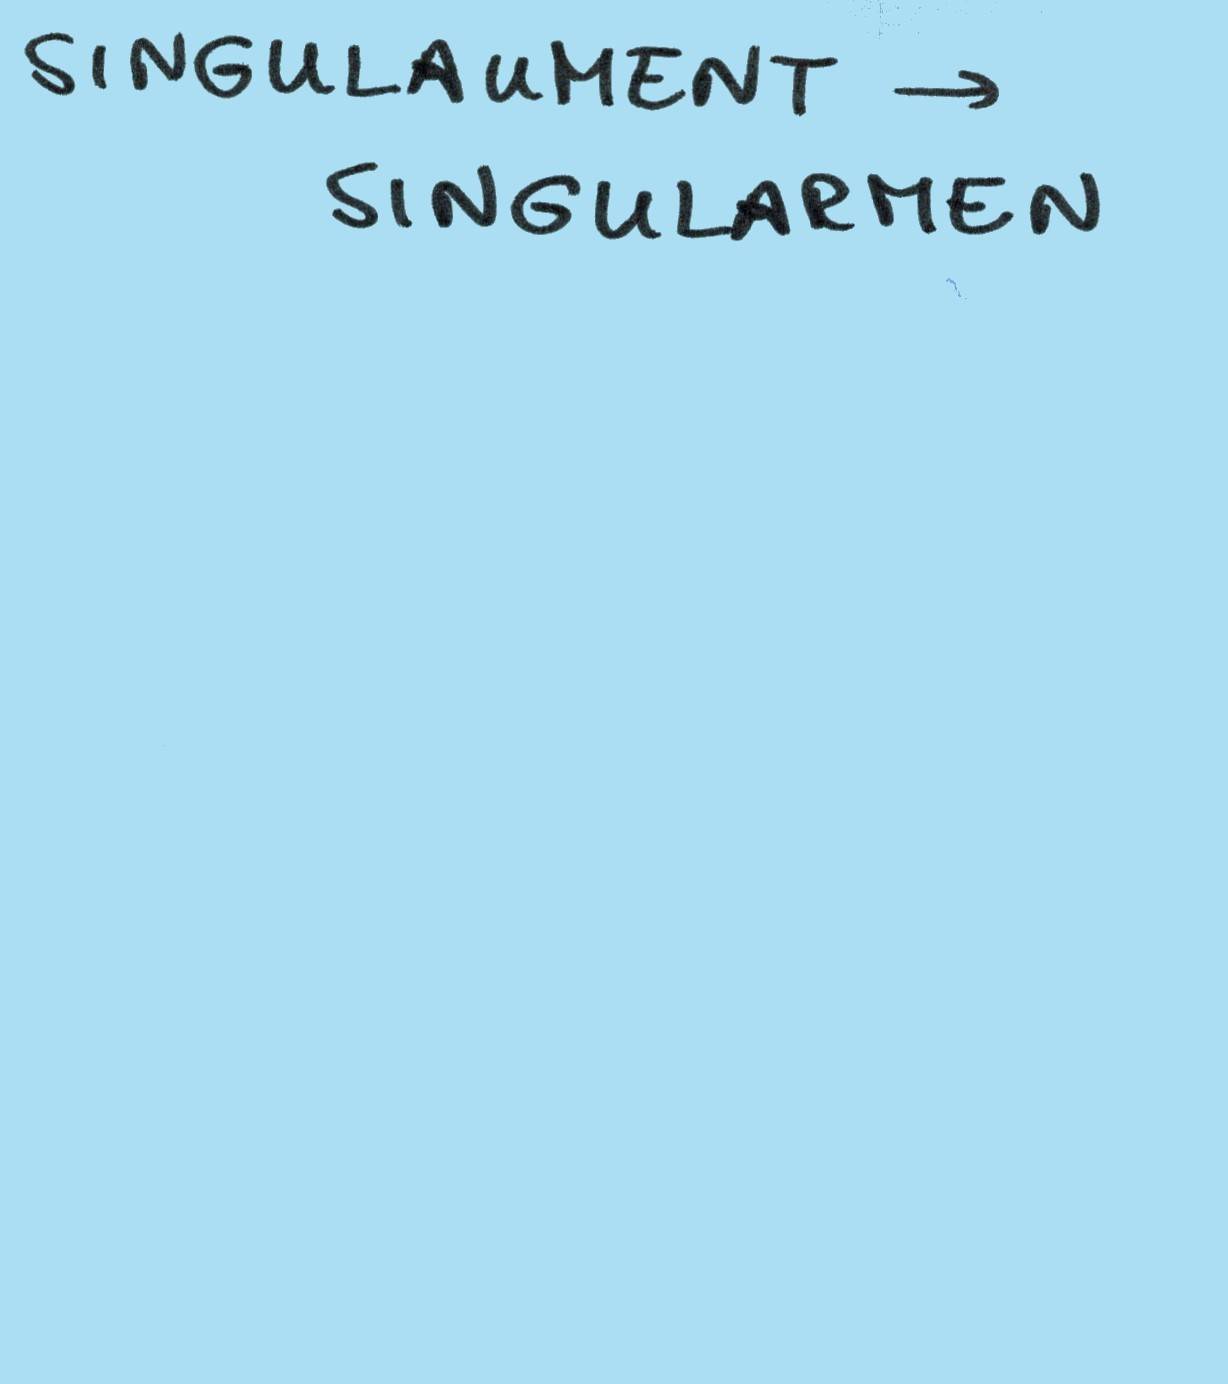 SINGULAUMENT →
SINGULARMEN